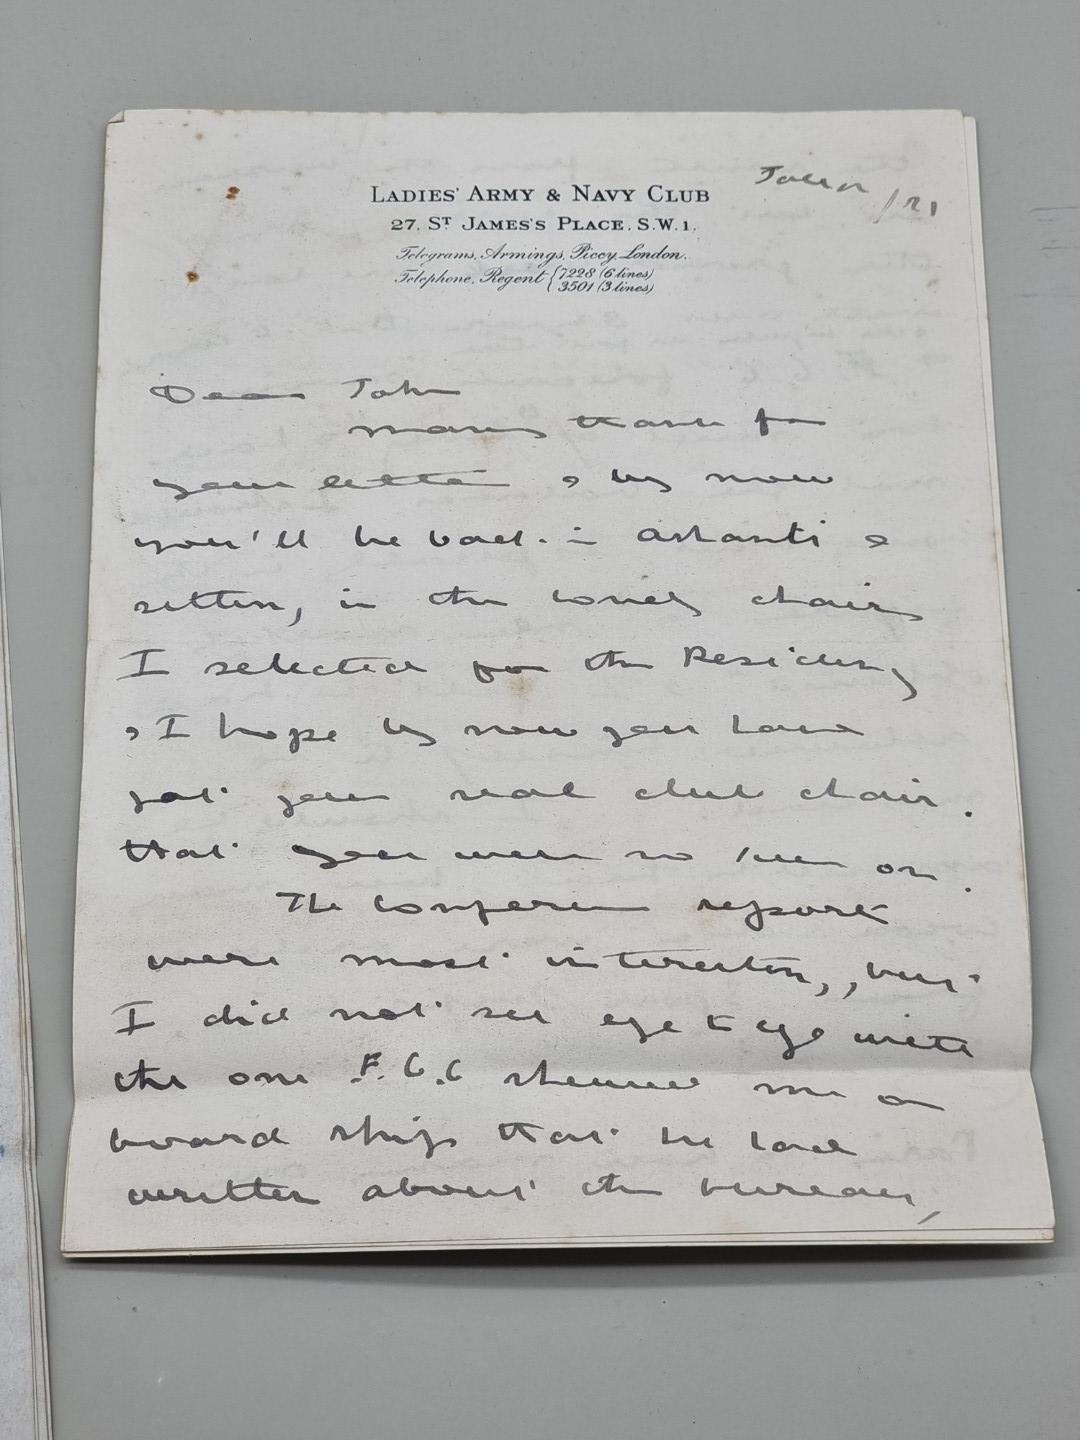 LADIES' ARMY & NAVY CLUB
27, ST JAMES'S PLACE, S.W.1.
Telegrams, Armings, Piccy, London.
Telephone, Regent {7228 (6 lines)
3501 (3 lines)
/21
Dear John
Many thanks for
your letter & by now
you'll be back in Ashanti &
sitting in the comfy chairs
I selected for the Residency
& I hope by now you have
got your real club chair.
that you were so keen on.
The Conference reports
were most interesting, but
I did not see eye to eye with
the one F.G.G showed me on
board ship that he had
written about the bureau,